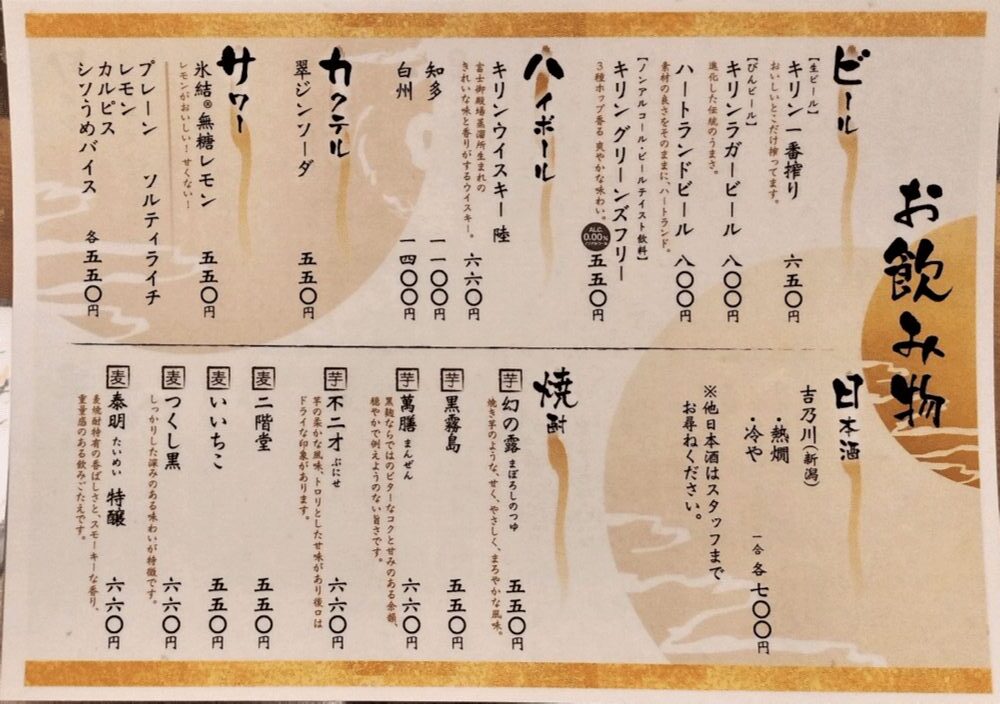 お飲み物
ビール
【生ビール】
キリン一番搾り 六五〇円
おいしいとこだけ搾ってます。
【びんビール】
キリンラガービール 八〇〇円
進化した伝統のうまさ。
ハートランドビール 八〇〇円
素材の良さをそのままに、ハートランド。
【ノンアルコール・ビールテイスト飲料】
キリン グリーンズフリー 五五〇円
3種ホップ香る爽やかな味わい。
ALC.
0.00%
ハイボール
キリンウイスキー 陸 六六〇円
富士御殿場蒸溜所生まれの
きれいな味と香りがするウイスキー。
知多 一一〇〇円
白州 一四〇〇円
カクテル
翠ジンソーダ 五五〇円
サワー
氷結®無糖レモン 五五〇円
レモンがおいしい!せくない!
プレーン ソルティライチ
レモン
カルピス
シソうめバイス 各 五五〇円
日本酒
吉乃川(新潟)
・熱燗
・冷や 一合 各 七〇〇円
※他日本酒はスタッフまで
お尋ねください。
焼酎
芋 幻の露 まぼろしのつゆ 五五〇円
焼き芋のような、せく、やさしく、まろやかな風味。
芋 黒霧島 五五〇円
芋 萬膳 まんぜん 六六〇円
黒麹ならではのビターなコクとせみのある余韻、
穏やかで例えようのない旨さです。
芋 不二才 ぶにせ 六六〇円
芋の柔かな風味、トロリとしたせ味があり後口は
ドライな印象があります。
麦 二階堂 五五〇円
麦 いいちこ 五五〇円
麦 つくし黒 六六〇円
しっかりした深みのある味わいが特徴です。
麦 泰明 たいめい 特醸 六六〇円
麦焼酎特有の香ばしさと、スモーキーな香り、
重量感のある飲みごたえです。